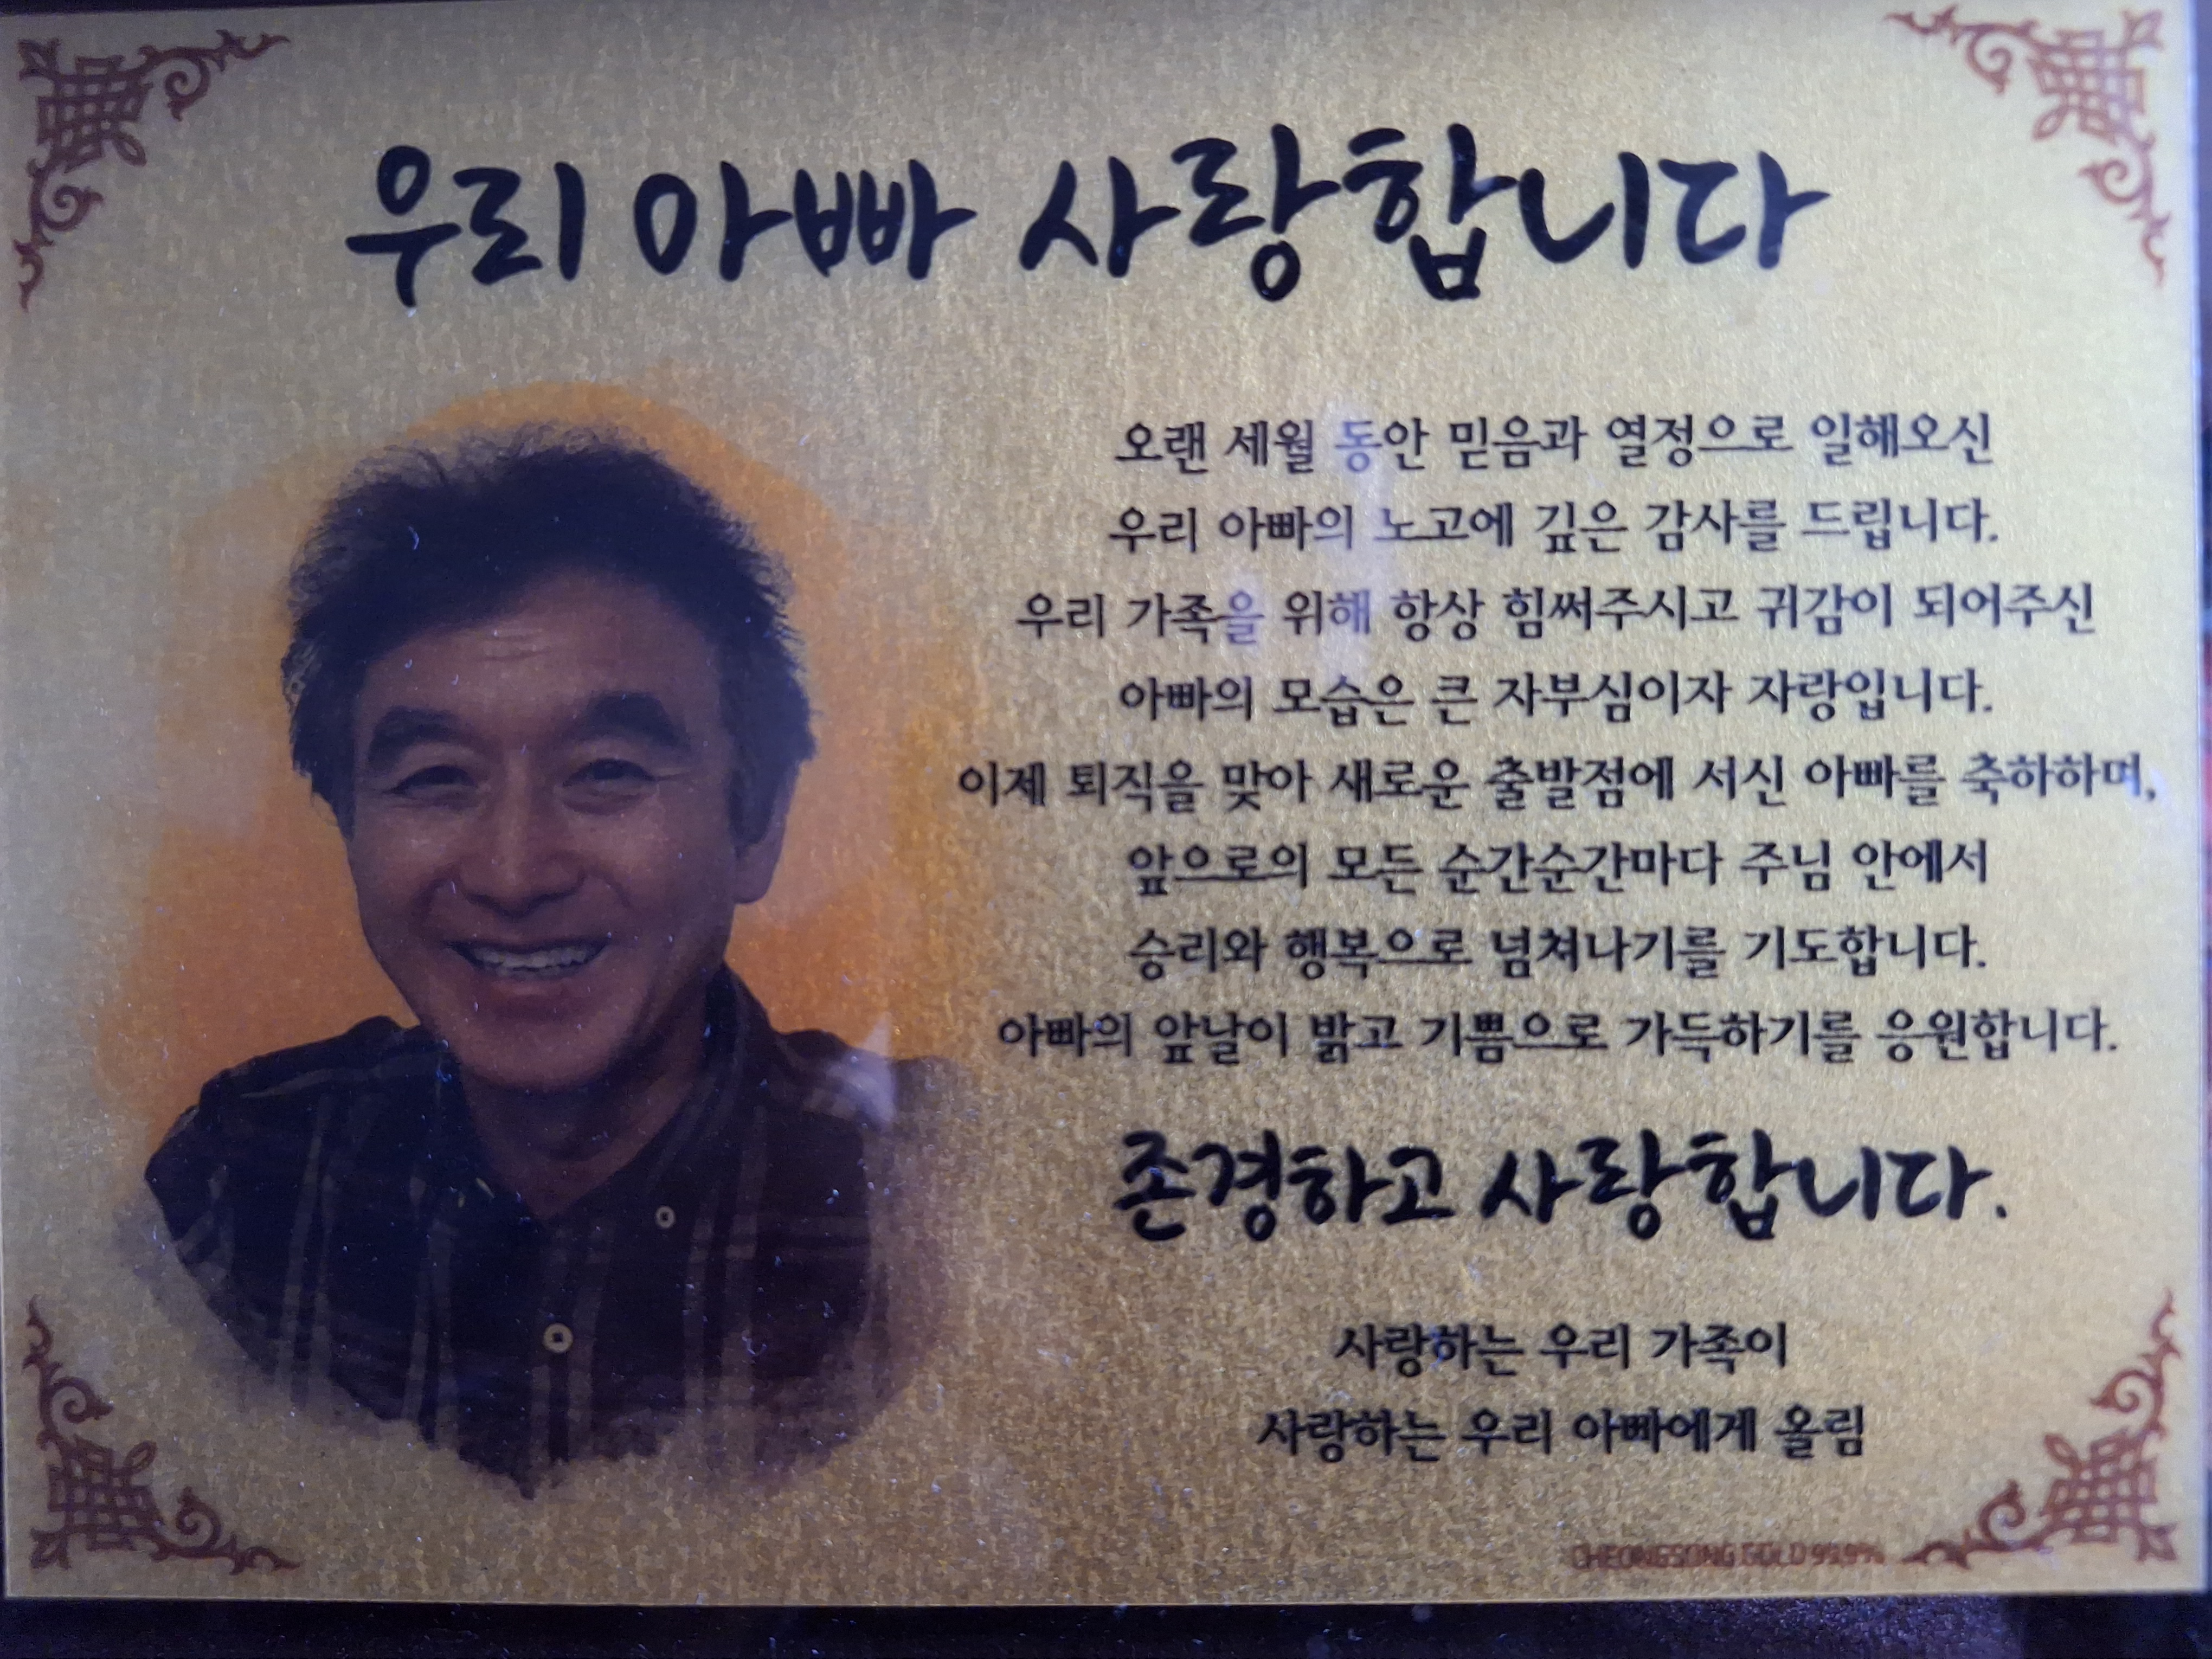 우리 아빠 사랑합니다
오랜 세월 동안 믿음과 열정으로 일해오신
우리 아빠의 노고에 깊은 감사를 드립니다.
우리 가족을 위해 항상 힘써주시고 귀감이 되어주신
아빠의 모습은 큰 자부심이자 자랑입니다.
이제 퇴직을 맞아 새로운 출발점에 서신 아빠를 축하하며,
앞으로의 모든 순간순간마다 주님 안에서
승리와 행복으로 넘쳐나기를 기도합니다.
아빠의 앞날이 밝고 기쁨으로 가득하기를 응원합니다.
존경하고 사랑합니다.
사랑하는 우리 가족이
사랑하는 우리 아빠에게 올림
CHEONGSONG GOLD 99.9%